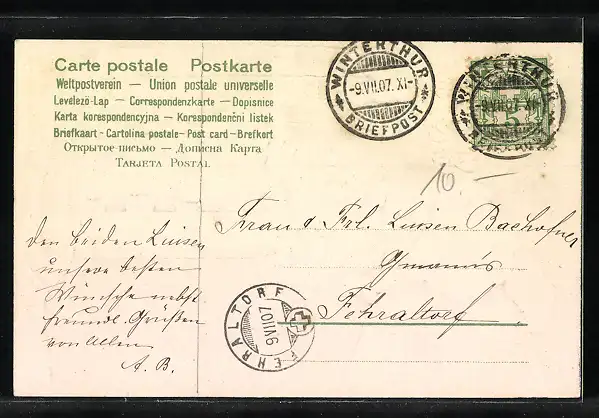 Carte postale Postkarte
Weltpostverein — Union postale universelle
Levelező-Lap — Correspondenzkarte — Dopisnice
Karta korespondencyjna — Korespondenční listek
Briefkaart - Cartolina postale - Post card - Brefkort
Открытое письмо — Дописна Карта
Tarjeta Postal
WINTERTHUR
-9.VII.07. XI-
BRIEFPOST
WINTERTHUR
-9.VII.07. XI-
BRIEFPOST
10.—
Frau & Frl. Luisen Bachofner
Fehraltorf
Den beiden Luisen
unsere besten
Wünsche nebst
freundl. Grüßen
von Allen
A. B.
FEHRALTORF
9 VII 07